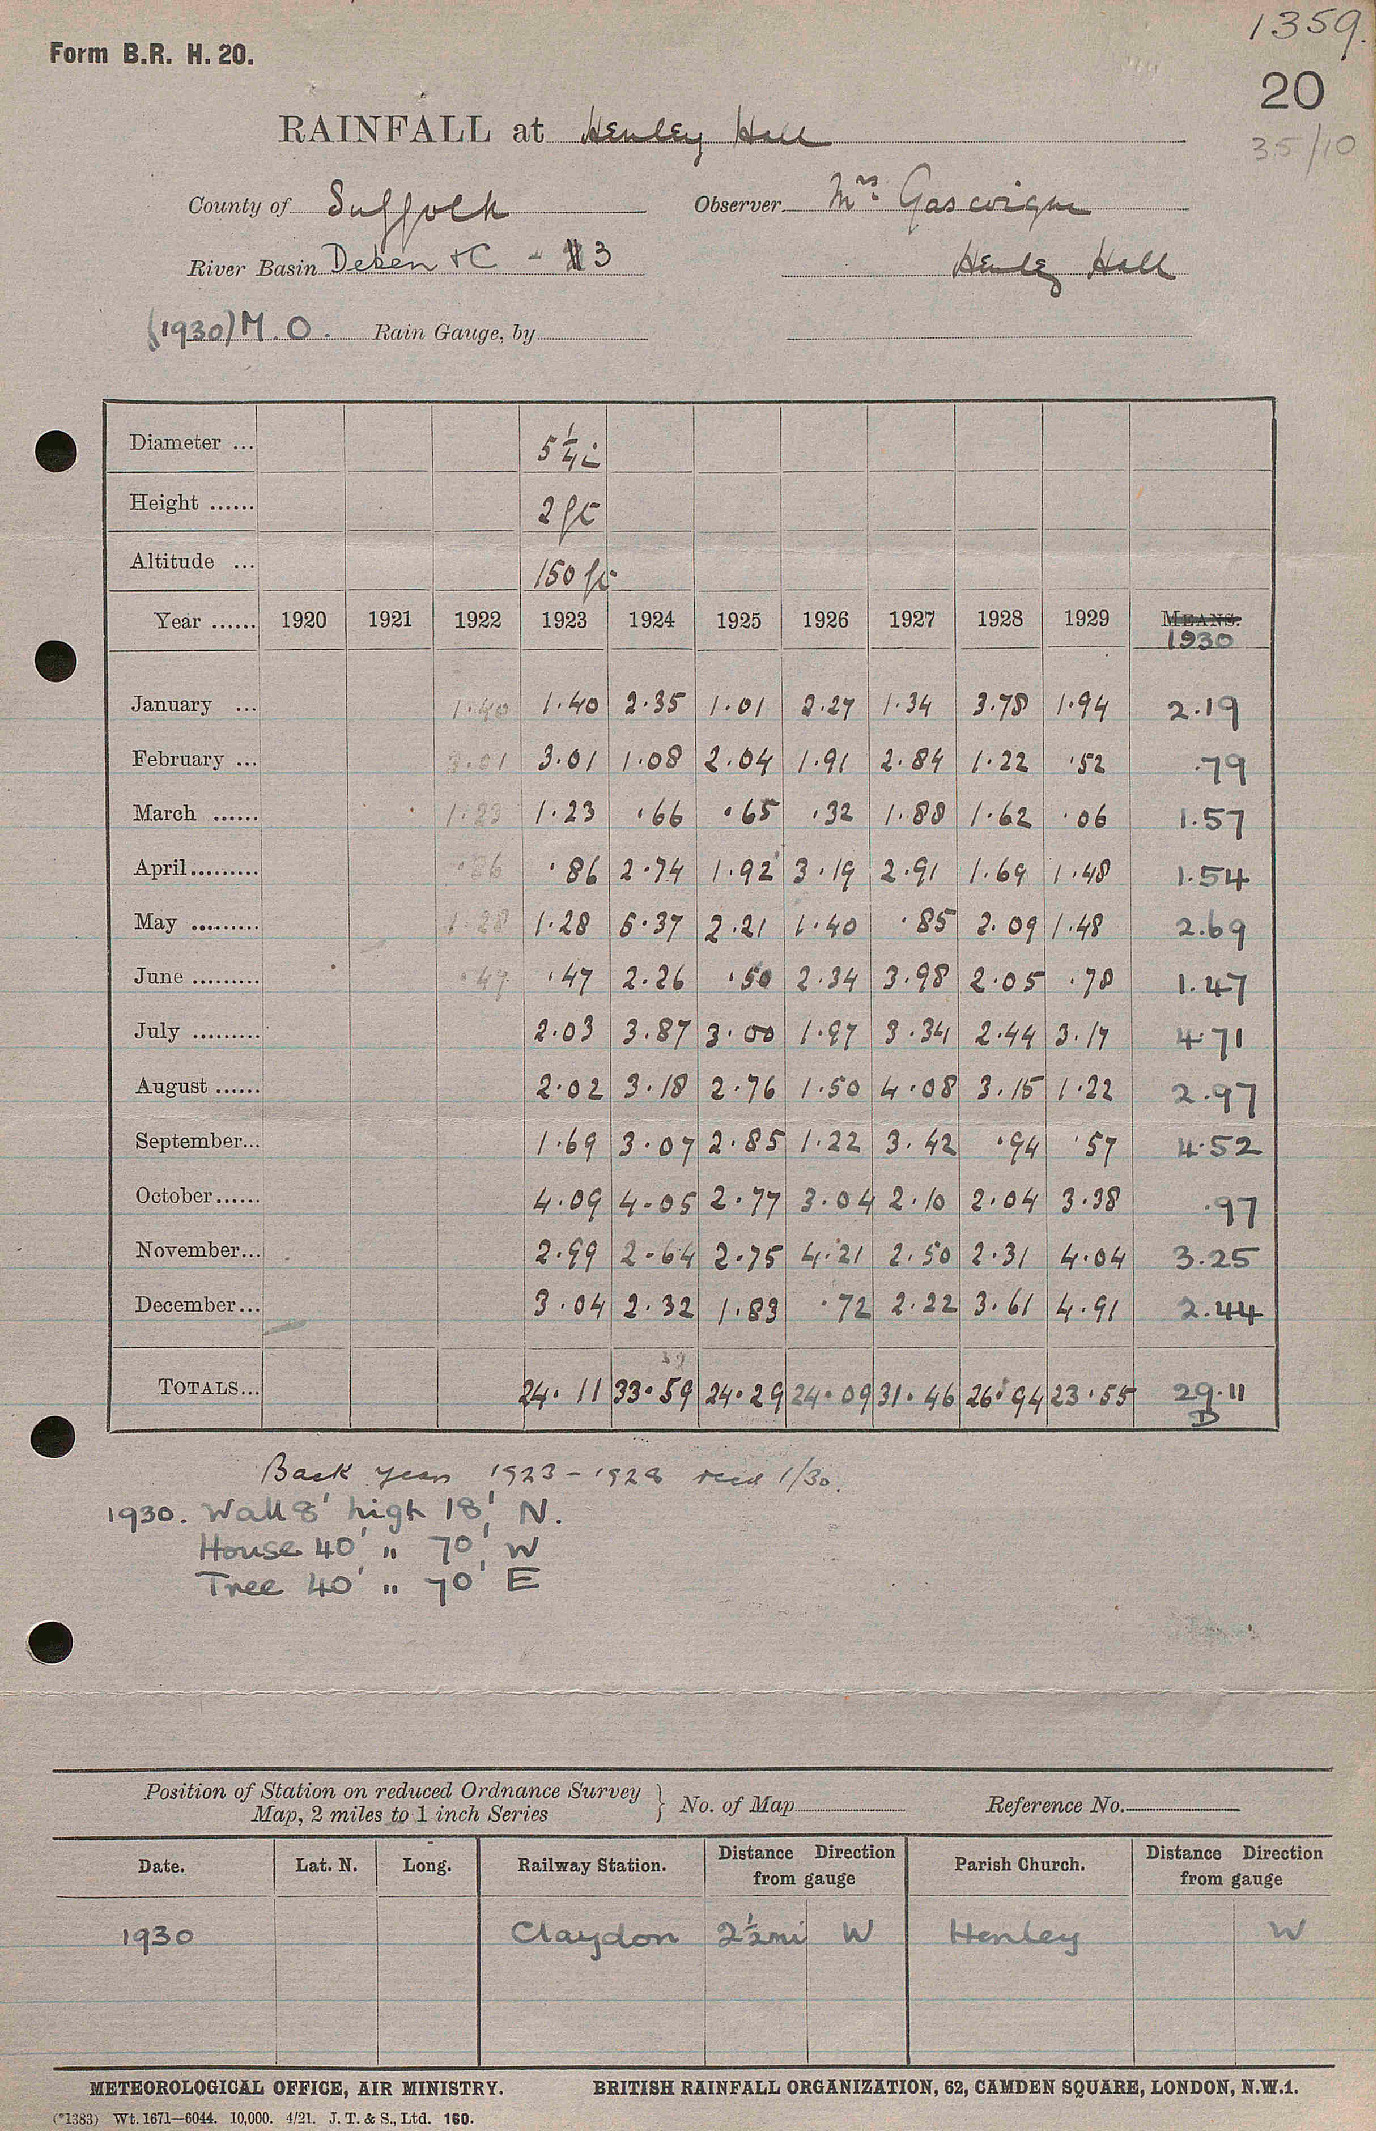 1359.
Form B.R. H. 20.
20
RAINFALL at Henley Hall
35/10
County of Suffolk Observer Mrs Gascoigne
River Basin Deben + C - 3 Henley Hall
(1930) M.O. Rain Gauge, by
Diameter ... 5 1/4 i
Height ...... 2 ft
Altitude ... 150 ft
Year ...... 1920 1921 1922 1923 1924 1925 1926 1927 1928 1929 MEANS.
1930
January ... 1.40 1.40 2.35 1.01 2.27 1.34 3.78 1.94 2.19
February ... 3.01 3.01 1.08 2.04 1.91 2.84 1.22 .52 .79
March ...... 1.23 1.23 .66 .65 .32 1.88 1.62 .06 1.57
April......... .86 .86 2.74 1.92 3.19 2.91 1.69 1.48 1.54
May ......... 1.28 1.28 5.37 2.21 1.40 .85 2.09 1.48 2.69
June ......... .47 .47 2.26 .50 2.34 3.98 2.05 .78 1.47
July ......... 2.03 3.87 3.00 1.97 3.34 2.44 3.17 4.71
August ...... 2.02 3.18 2.76 1.50 4.08 3.15 1.22 2.97
September... 1.69 3.07 2.85 1.22 3.42 .94 .57 4.52
October...... 4.09 4.05 2.77 3.04 2.10 2.04 3.38 .97
November... 2.99 2.64 2.75 4.21 2.50 2.31 4.04 3.25
December... 3.04 2.32 1.83 .72 2.22 3.61 4.91 2.44
TOTALS... 24.11 33.59 24.29 24.09 31.46 26.94 23.55 29.11
D
Back years 1923-1928 recd 1/30.
1930. Wall 8' high 18' N.
House 40' " 70' W
Tree 40' " 70' E
Position of Station on reduced Ordnance Survey
Map, 2 miles to 1 inch Series } No. of Map Reference No.
Date. Lat. N. Long. Railway Station. Distance Direction from gauge Parish Church. Distance Direction from gauge
1930 Claydon 2½ mi W Henley W
METEOROLOGICAL OFFICE, AIR MINISTRY. BRITISH RAINFALL ORGANIZATION, 62, CAMDEN SQUARE, LONDON, N.W.1.
(*1383) Wt. 1671—6044. 10,000. 4/21. J. T. & S., Ltd. 160.